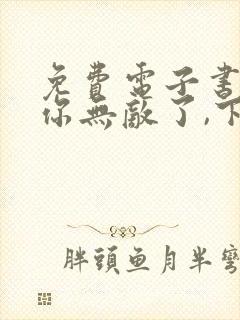 免費電子書
你無敵了,下
胖頭鱼月半彎